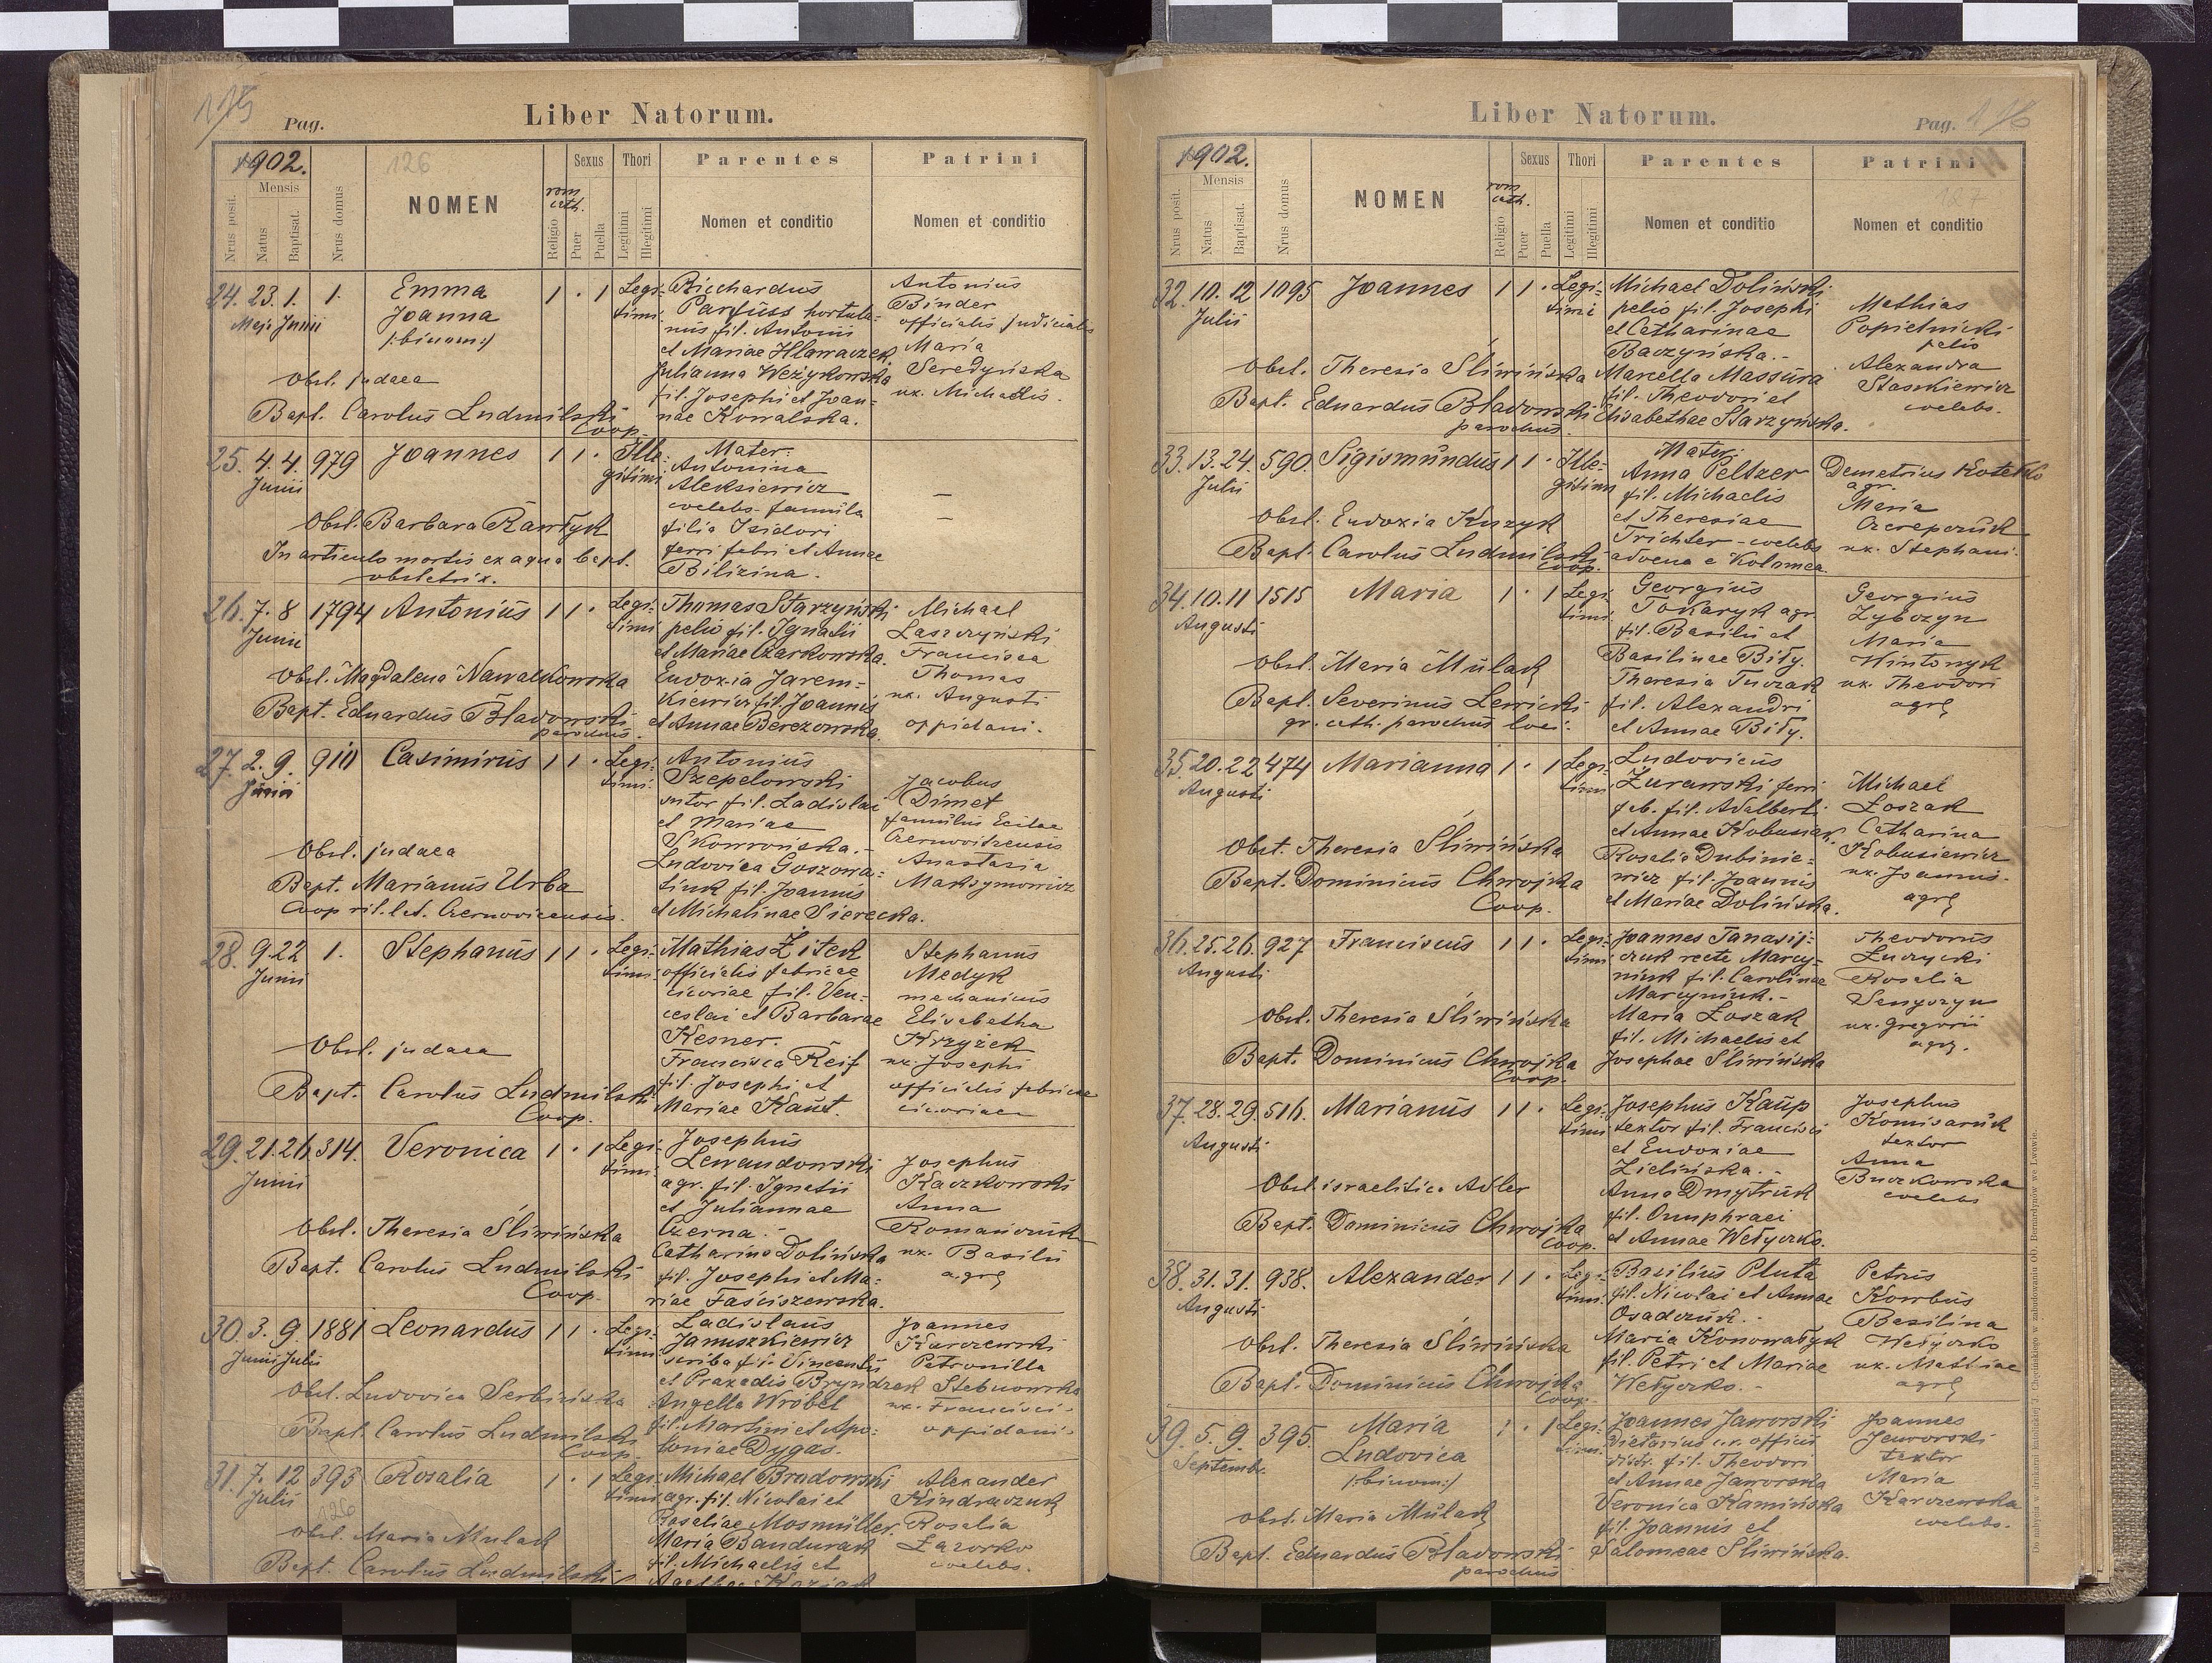 175
Pag.
Liber Natorum.
1902.
126
Nrus posit.
Mensis
Natus
Baptisat.
Nrus domus
NOMEN
rom. cath.
Religio
Sexus
Puer
Puella
Thori
Legitimi
Illegitimi
Parentes
Nomen et conditio
Patrini
Nomen et conditio
24. 23. 1. 1. Emma 1 . 1 Legi-
Maji Junii Joanna timi
/:binom:/
Obst. judaea
Bapt. Carolus Ludmilski
Coop.
Ricchardus
Parfüss hortula-
nus fil. Antonii
et Mariae Hlawaczek,
Julianna Wężykowska
fil. Josephi et Joan-
nae Kowalska.
Antonius
Binder
officialis judicialis
Maria
Seredyńska
ux. Michaelis.
25. 4. 4. 979 Joannes 1 1 . Ille-
Junii gitimi
Obst. Barbara Rawłyk
In articulo mortis ex aqua bapt.
obstetrix.
Mater:
Antonina
Aleksiewicz
coelebs famula
filia Isidori
ferri fabri et Annae
Bilizina.
–
–
26. 7. 8 1794 Antonius 1 1 . Legi-
Junii timi
Obst. Magdalena Nawalkowska
Bapt. Eduardus Bładowski
parochus.
Thomas Starzyński
pelio fil. Ignatii
et Mariae Czarkowska.
Eudoxia Jarem-
kiewicz fil. Joannis
et Annae Berezowska.
Michael
Laszczyński
Francisca
Thomas
ux. Augusti
oppidani.
27. 2. 9. 910 Casimirus 1 1 . Legi-
Junii timi
Obst. judaea
Bapt. Marianus Urba
Coop rit. lat. Czernovicensis.
Antonius
Szepelowski
sutor fil. Ladislai
et Mariae
Skowrońska.-
Ludovica Goszowa-
tiuk fil. Joannis
et Michalinae Sierecka.
Jacobus
Dimet
famulus Ecclae
Czernovitzensis
Anastasia
Maksymowicz
28. 9. 22 1. Stephanus 1 1 . Legi-
Junii timi
Obst. judaea
Bapt. Carolus Ludmilski
Coop.
Mathias Žitek
officialis fabricae
cicoriae fil. Ven-
ceslai et Barbarae
Kesner.
Francisca Reif
fil. Josephi et
Mariae Kaut.
Stephanus
Medyk
mechanicus
Elisabetha
Krzyżek
ux. Josephi
officialis fabricae
cicoriae
29. 21. 26. 314. Veronica 1 . 1 Legi-
Junii timi
Obst. Theresia Śliwińska
Bapt. Carolus Ludmilski
Coop.
Josephus
Lewandowski
agr. fil. Ignatii
et Juliannae
Czerna.-
Catharina Dolińska
fil. Josephi et Ma-
riae Faściszewska.
Josephus
Kaczkowski
Anna
Romańczuk
ux. Basilii
agr.
30. 3. 9. 1881 Leonardus 1 1 . Legi-
Junii Julii timi
Obst. Ludovica Serbińska
Bapt. Carolus Ludmilski
Coop
Ladislaus
Januszkiewicz
scriba fil. Vincentii
et Praxedis Bryndzak
Angella Wróbel
fil. Martini et Apo-
loniae Dygas.
Joannes
Karczewski
Petronilla
Stebnowska
ux. Francisci
oppidani
31. 7. 12 393 Rosalia 1 . 1 Legi-
Julii timi
126
Obst. Maria Mulak
Bapt. Carolus Ludmilski
Michael Brudowski
agr. fil. Nicolai et
Rosaliae Mosmüller.
Maria Bandurak
fil. Michaelis et
Agathae
Alexander
Kindraczuk
Rosalia
Lazorko
coelebs.
Liber Natorum.
Pag. 176
1902.
Nrus posit.
Mensis
Natus
Baptisat.
Nrus domus
NOMEN
rom. cath.
Religio
Sexus
Puer
Puella
Thori
Legitimi
Illegitimi
Parentes
Nomen et conditio
Patrini
Nomen et conditio
32. 10. 12 1095 Joannes 1 1 . Legi-
Julii timi
Obst. Theresia Śliwińska
Bapt. Eduardus Bładowski
parochus.
Michael Doliński
pelio fil. Josephi
et Catharinae
Baczyńska.-
Marcella Massura
fil. Theodori et
Elisabethae Starzyńska.
Mathias
Popielnicki
pelio
Alexandra
Staszkiewicz
coelebs.
33. 13. 24. 590. Sigismundus 1 1 . Ille-
Julii gitimi
Obst. Eudoxia Kuzyk
Bapt. Carolus Ludmilski
Coop.
Mater:
Anna Peltzer
fil. Michaelis
et Theresiae
Trichter - coelebs
advena e Kolomea.
Demetrius Kotelko
agr.
Maria
Czerepczuk
ux. Stephani.
34. 10. 11 1515 Maria 1 . 1 Legi-
Augusti timi
Obst. Maria Mulak
Bapt. Severinus Lewicki
gr. cath. parochus loci.
Georgius
Tokaryk agr.
fil. Basilii et
Basilinae Biły.
Theresia Tuczak
fil. Alexandri
et Annae Biły.
Georgius
Zybczyn
Maria
Wintonyk
ux. Theodori
agr.
35. 20. 22 474 Marianna 1 . 1 Legi-
Augusti timi
Obst. Theresia Śliwińska
Bapt. Dominicus Chwojka
Coop.
Ludovicus
Żurawski ferri
fab. fil. Adalberti
et Annae Kobusiak
Rosalia Dubinie-
wicz fil. Joannis
et Mariae Dolińska.
Michael
Łoszak
Catharina
Kobusiewicz
ux. Joannis.
agr.
36. 25. 26. 927 Franciscus 1 1 . Legi-
Augusti timi
Obst. Theresia Śliwińska
Bapt. Dominicus Chwojka
Coop.
Joannes Tanasij-
czuk recte Marcy-
niuk fil. Carolinae
Marcyniuk.-
Maria Łoszak
fil. Michaelis et
Josephae Śliwińska
Theodorus
Łuczycki
Rosalia
Senyczyn
ux. Gregorii
agr.
37. 28. 29. 516. Marianus 1 1 . Legi-
Augusti timi
Obst. israelitica Adler
Bapt. Dominicus Chwojka
Coop.
Josephus Kaup
textor fil. Francisci
et Eudoxiae
Zielińska.-
Anna Dmytruk
fil. Onuphraei
et Annae Wełyczko.
Josephus
Komisaruk
textor
Anna
Buczkowska
coelebs
38. 31. 31. 938. Alexander 1 1 . Legi-
Augusti timi
Obst. Theresia Śliwińska
Bapt. Dominicus Chwojka
Coop.
Basilius Pluta
fil. Nicolai et Annae
Osadczuk.-
Maria Konowałyk
fil. Petri et Mariae
Wełyczko.-
Petrus
Kowbus
Basilina
Wełyczko
ux. Mathiae
agr.
39. 5. 9. 395. Maria 1 . 1 Legi-
Septembr. Ludovica timi
/:binom:/
Obst. Maria Mulak
Bapt. Eduardus Bładowski
parochus
Joannes Jaworski
Dietarius officii
distr. fil. Theodori
et Annae Jaworska
Veronica Kamińska
fil. Joannis et
Salomeae Śliwińska.
Joannes
Jaworski
textor
Maria
Karczewska
coelebs.
Do nabycia w drukarni katolickiej J. Chęcińskiego w zabudowaniu OO. Bernardynów we Lwowie.